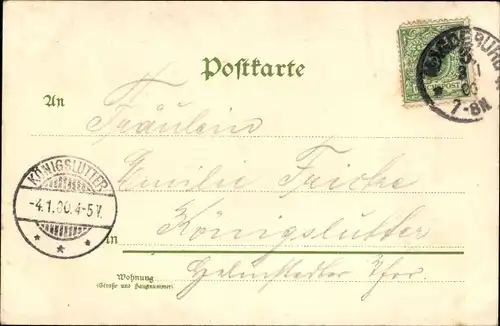 Postkarte
MAGDEBURG
7-8N
An
Fräulein
KÖNIGSLUTTER
-4.1.00.4-5V.
* * *
Emilie Fricke
in Königslutter
Wohnung
(Straße und Hausnummer)
Helmstedter Thor.